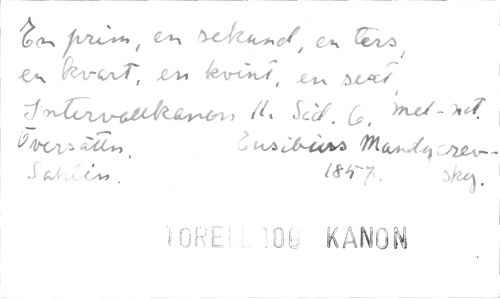 En prim, en sekund, en ters,
en kvart, en kvint, en sext,
Intervallkanon 11. Sid. 6. mel-not.
Översättn. Eusibius Mandyczev-
Sahlin. 1857. sky.
TORELL 100 KANON